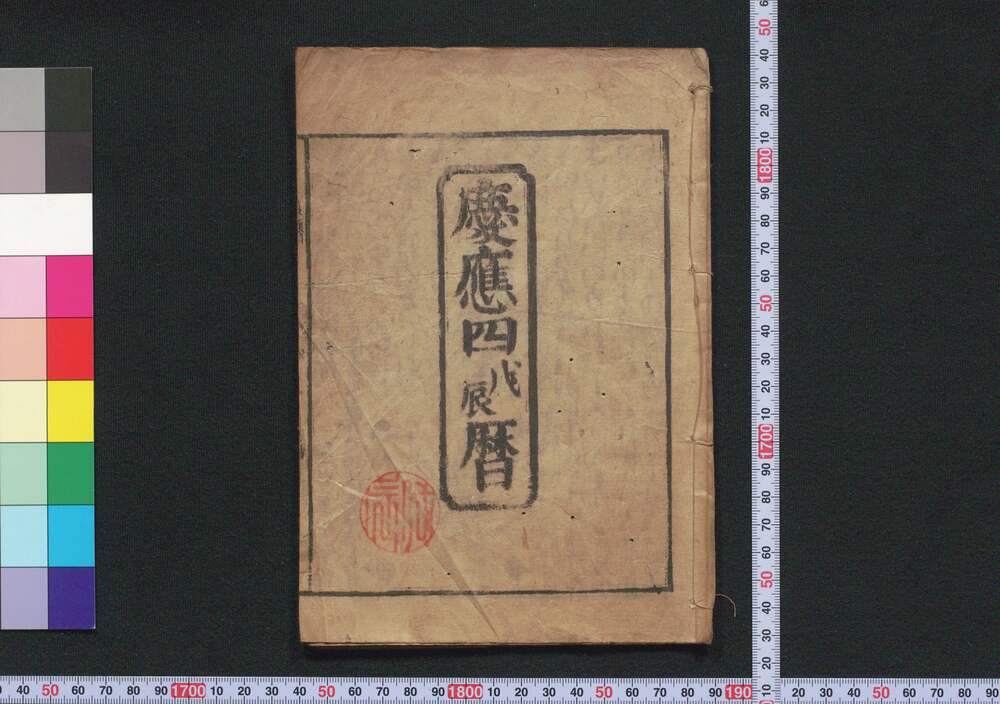 慶應四戊辰暦
60
50
40
30
20
10
1800
90
80
70
60
50
40
30
20
10
1700
90
80
70
60
50
40
30
20
10
40 50 60 70 80 90 1700 10 20 30 40 50 60 70 80 90 1800 10 20 30 40 50 60 70 80 90 190 20 30 40 50 60 70 80 90